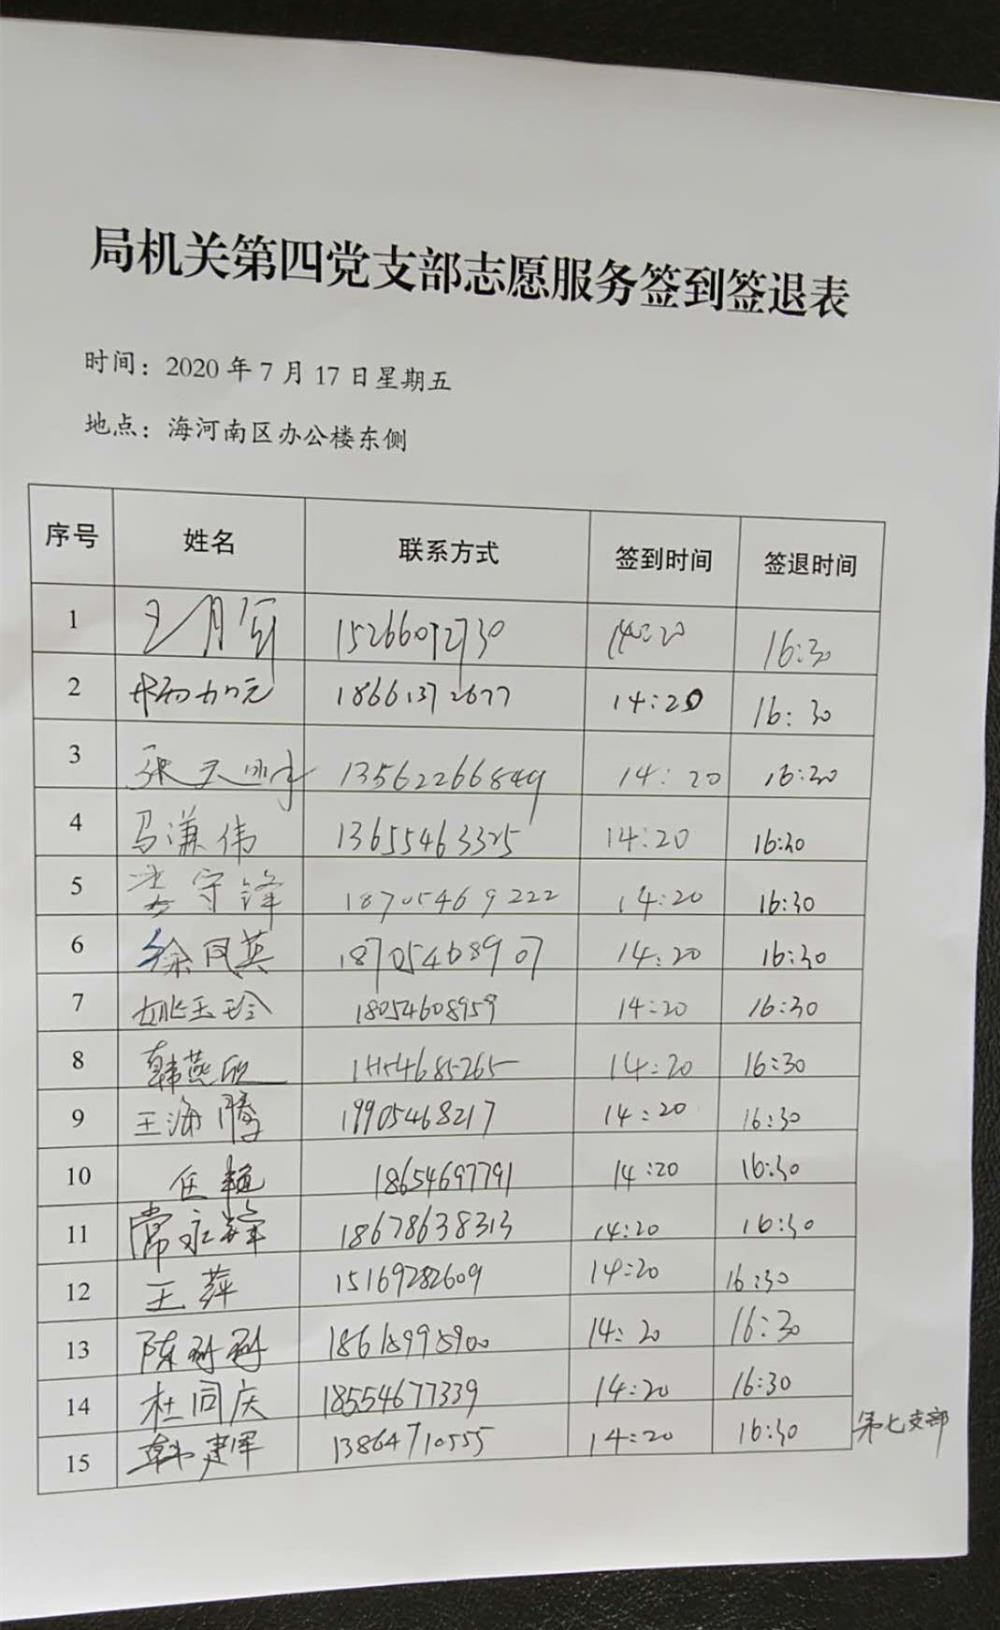 局机关第四党支部志愿服务签到签退表
时间：2020年7月17日星期五
地点：海河南区办公楼东侧
序号 姓名 联系方式 签到时间 签退时间
1 王月 15266092730 14:20 16:30
2 18661372677 14:20 16:30
3 张天 13562266849 14:20 16:30
4 马谦伟 13655463325 14:20 16:30
5 李守锋 18705469222 14:20 16:30
6 徐凤英 18705468907 14:20 16:30
7 姚玉玲 18054608959 14:20 16:30
8 韩燕欣 14:20 16:30
9 王海腾 19905468217 14:20 16:30
10 任 18654697791 14:20 16:30
11 常永锋 18678638313 14:20 16:30
12 王萍 15169282609 14:20 16:30
13 陈 18615995900 14:20 16:30
14 杜同庆 18554677339 14:20 16:30
15 韩建军 13864710555 14:20 16:30 第七支部